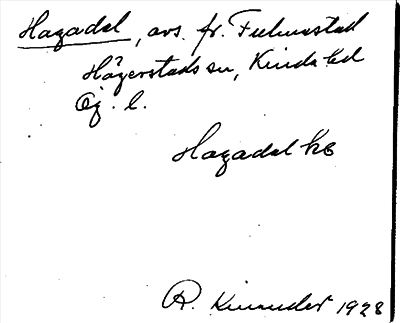 Hagadal, avs. fr. Fulmestad
Hägerstads sn, Kinda hd
Ög. l.
Hagadal
R. Kinander 1928